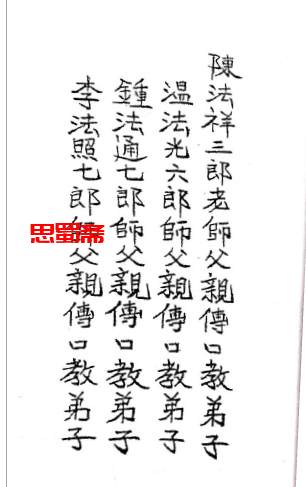 陳法祥三郎老師父親傳口教弟子
温法光六郎師父親傳口教弟子
鍾法通七郎師父親傳口教弟子
李法照七郎師父親傳口教弟子
思蜀斋